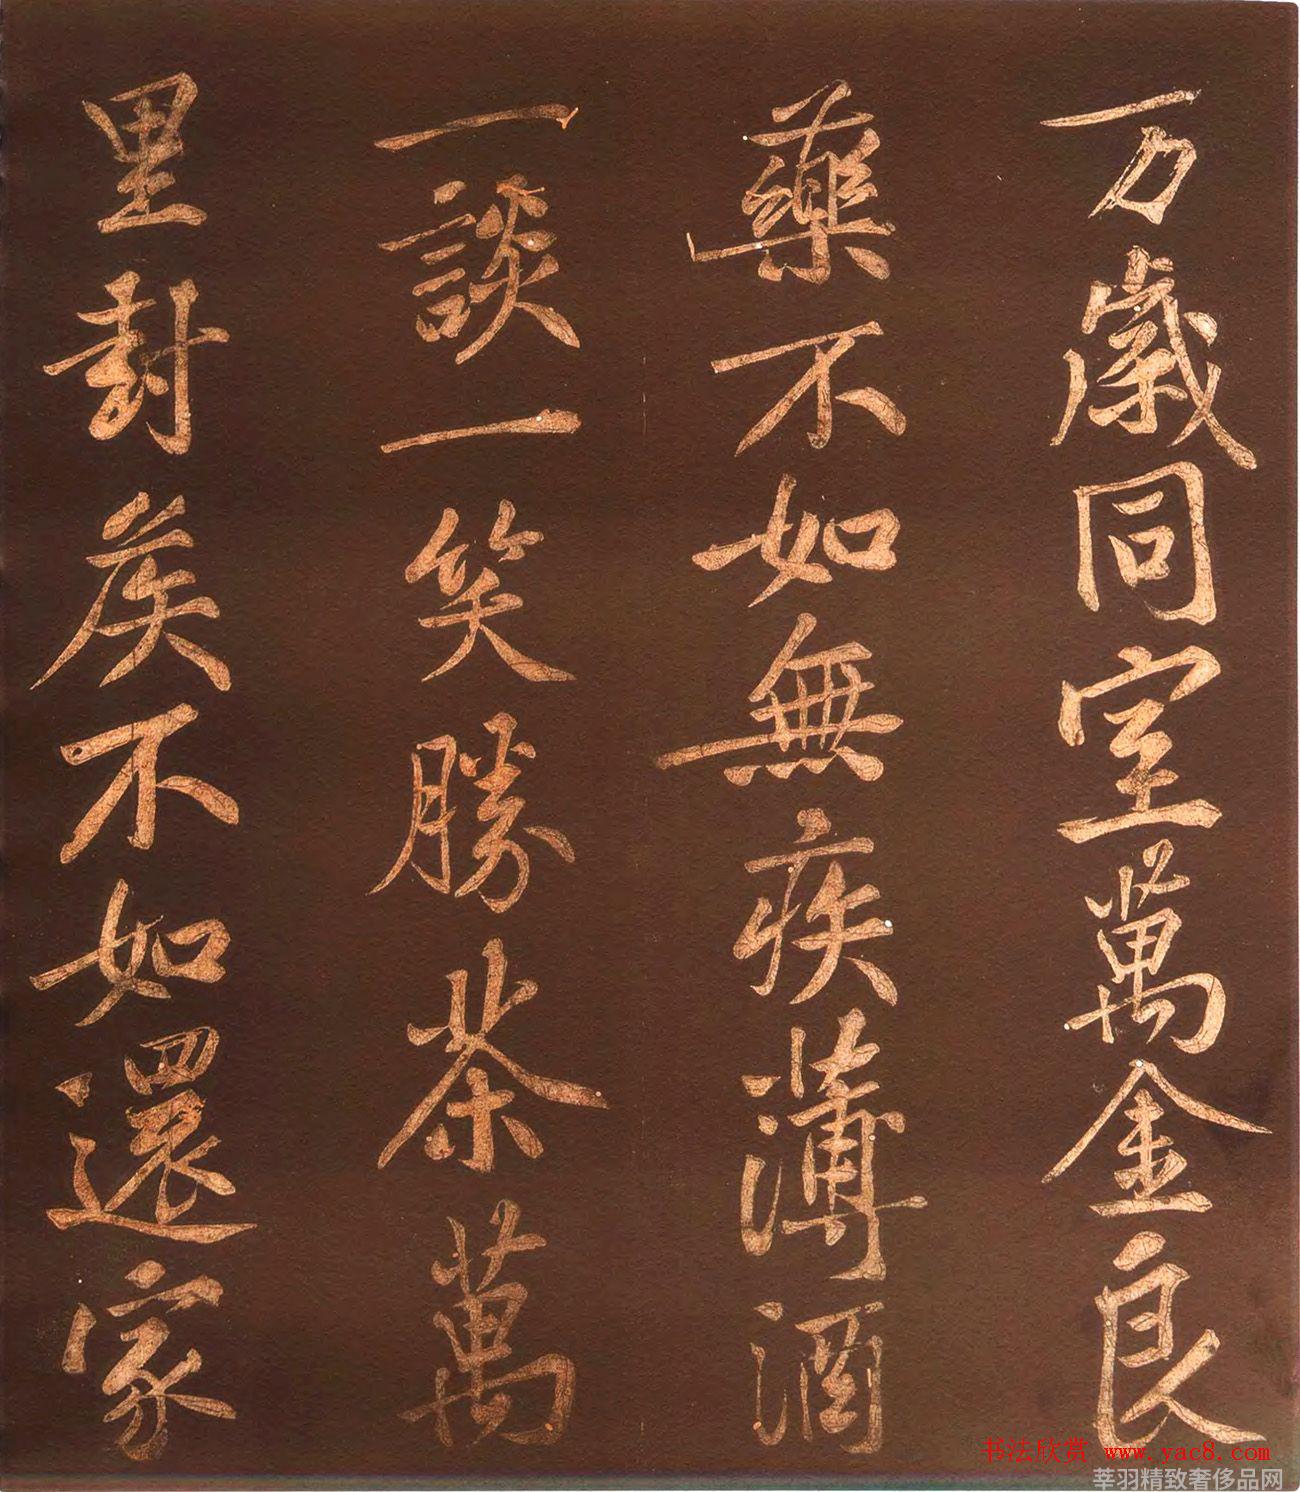 万歲同室萬金良
藥不如無疾薄酒
一談一笑勝茶萬
里封矦不如還家
书法欣赏 www.yac8.com
莘羽精致奢侈品网